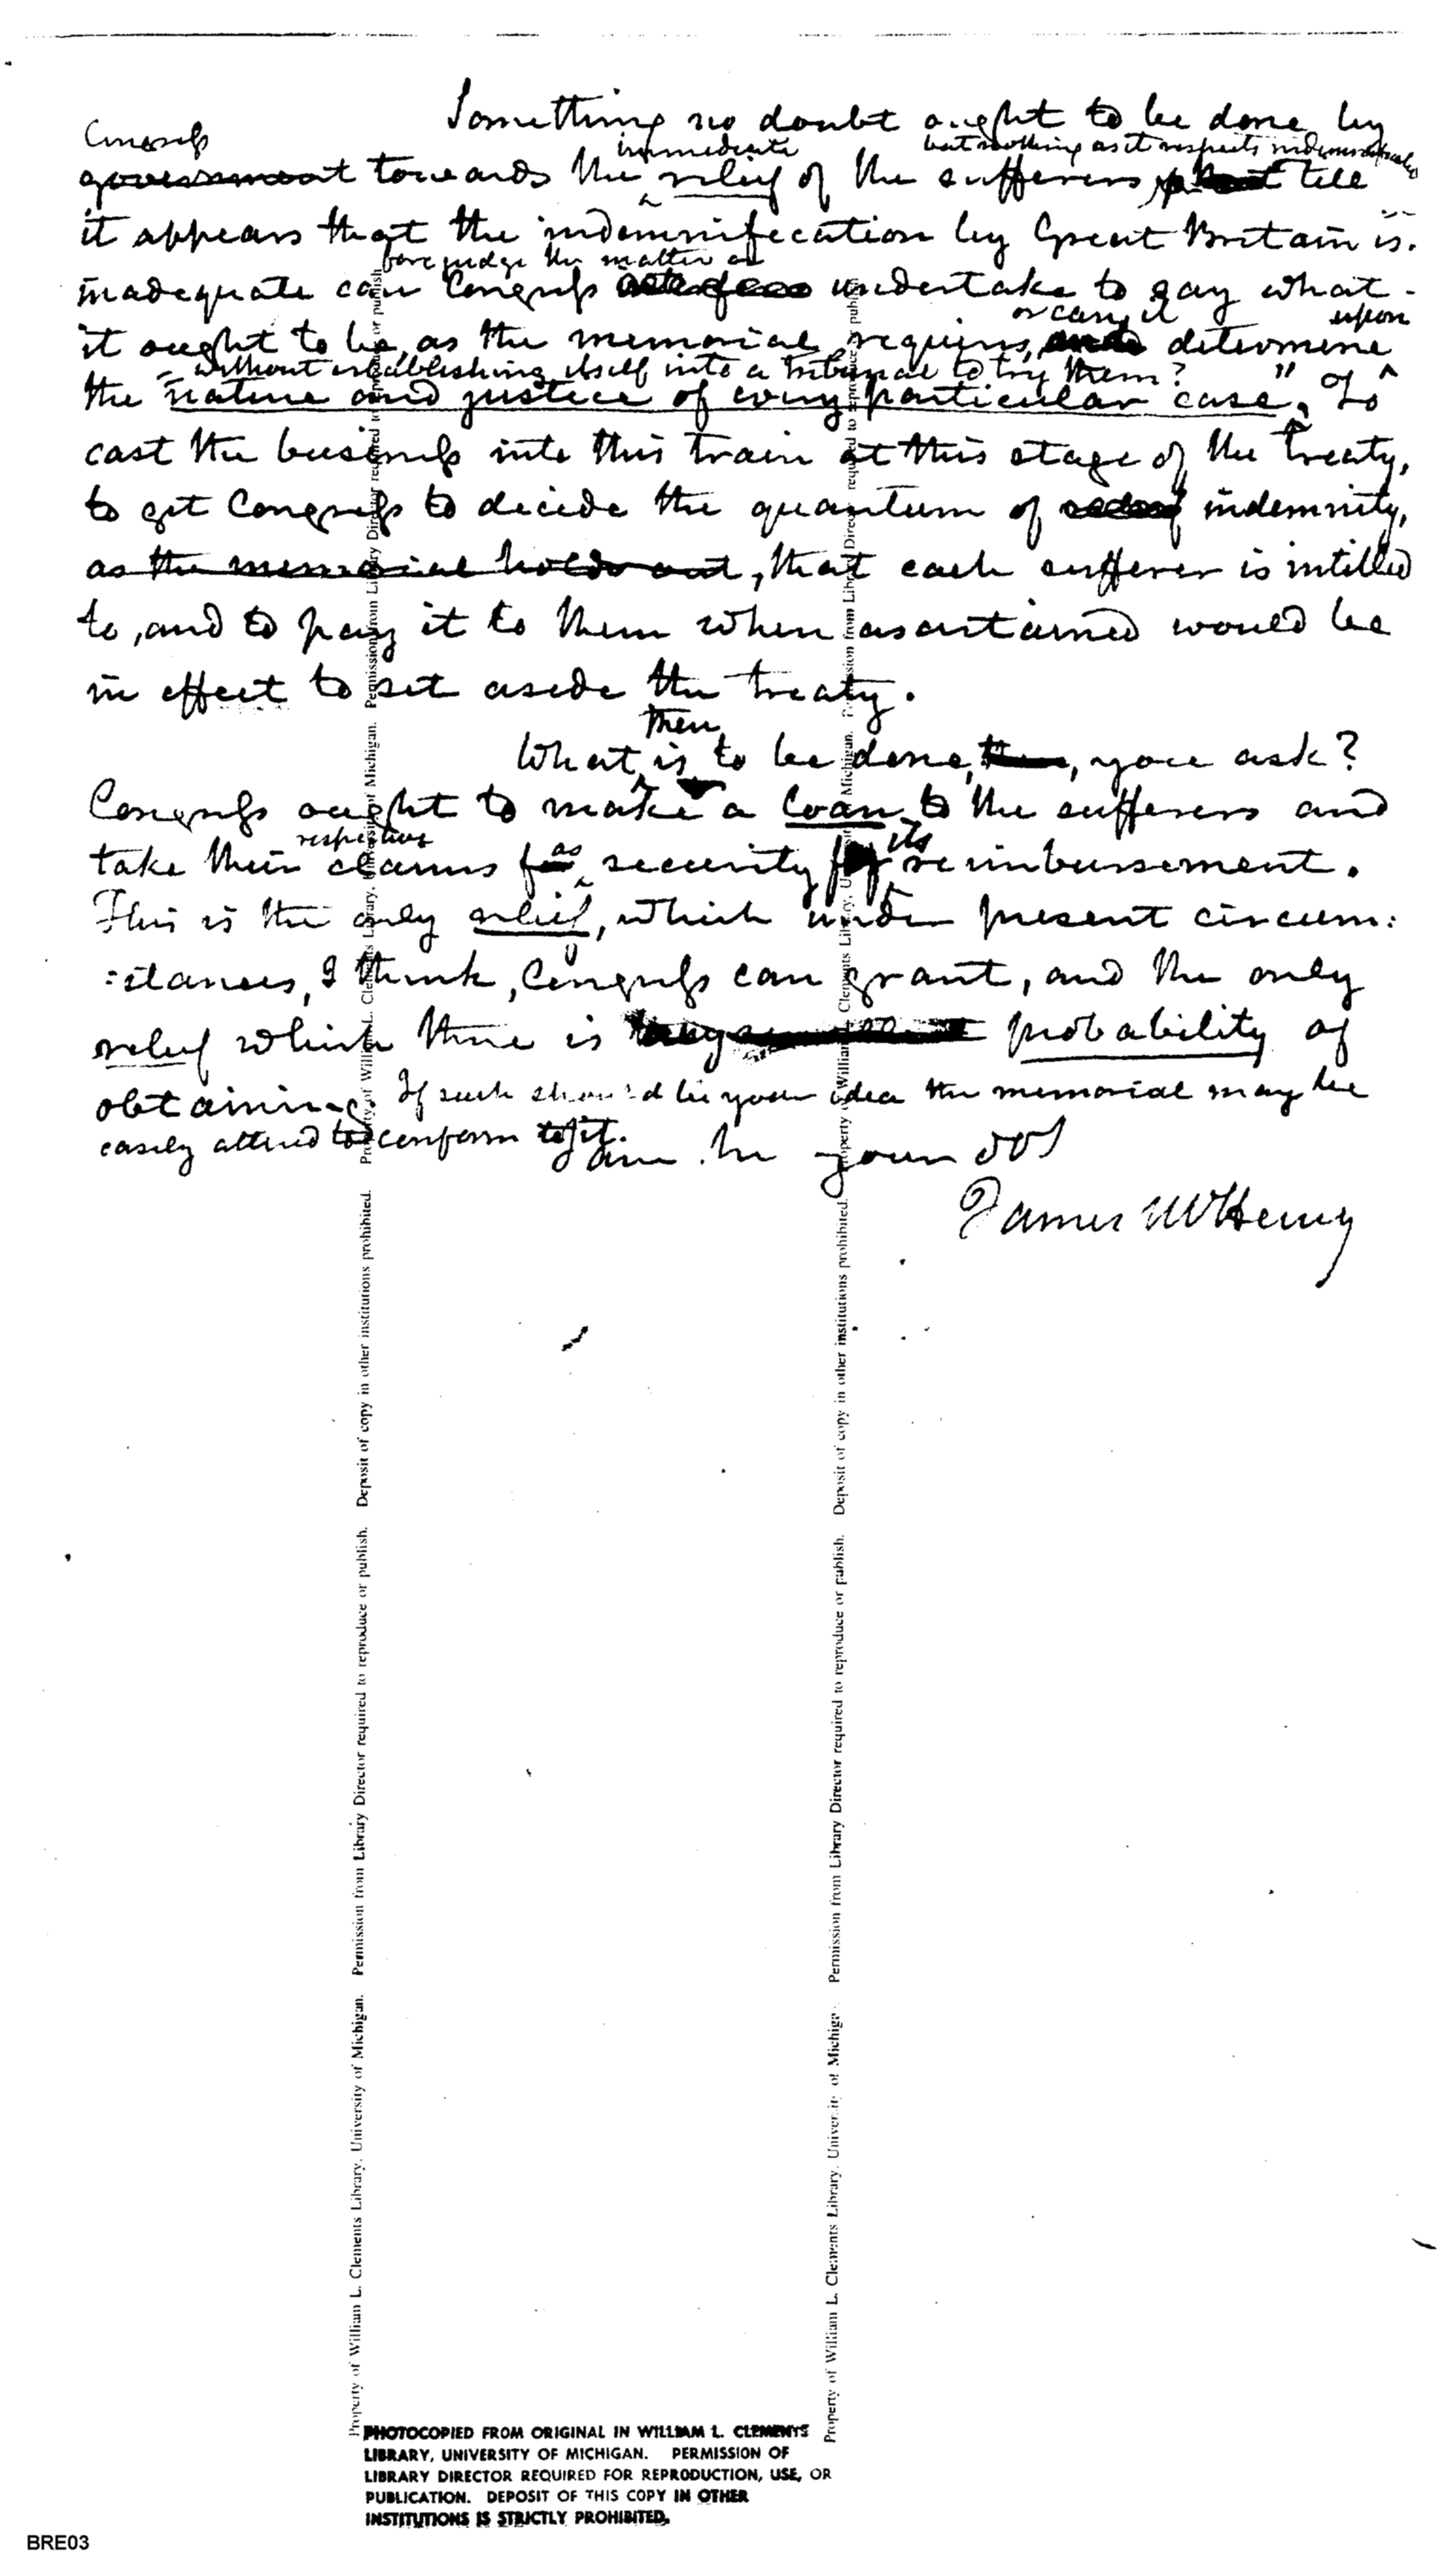 Something no doubt ought to be done by
Congress
immediate but nothing as it respects indemnification
government towards the relief of the sufferers till
it appears that the indemnification by Great Britain is
forejudge the matter or
inadequate can Congress undertake to say what
or can it upon
it ought to be, as the memorial requires, determine
without establishing itself into a tribunal to try them?
the "nature and justice of every particular case". To
cast the business into this train at this stage of the treaty,
to get Congress to decide the quantum of indemnity,
as the memorial holds out, that each sufferer is intitled
to, and to pay it to them when asertained would be
in effect to set aside the treaty.
then
What is to be done, then, you ask?
Congress ought to make a loan to the sufferers and
respective as its
take their claims for security for reimbursement.
This is the only relief, which under present circum:
:stances, I think, Congress can grant, and the only
relief which there is probability of
obtaining. If such should be your idea the memorial may be
easily altered to conform to it.
I am Sir your obt
James McHenry
Property of William L. Clements Library, University of Michigan. Permission from Library Director required to reproduce or publish. Deposit of copy in other institutions prohibited.
Property of William L. Clements Library, University of Michigan. Permission from Library Director required to reproduce or publish. Deposit of copy in other institutions prohibited.
PHOTOCOPIED FROM ORIGINAL IN WILLIAM L. CLEMENTS
LIBRARY, UNIVERSITY OF MICHIGAN. PERMISSION OF
LIBRARY DIRECTOR REQUIRED FOR REPRODUCTION, USE, OR
PUBLICATION. DEPOSIT OF THIS COPY IN OTHER
INSTITUTIONS IS STRICTLY PROHIBITED.
BRE03